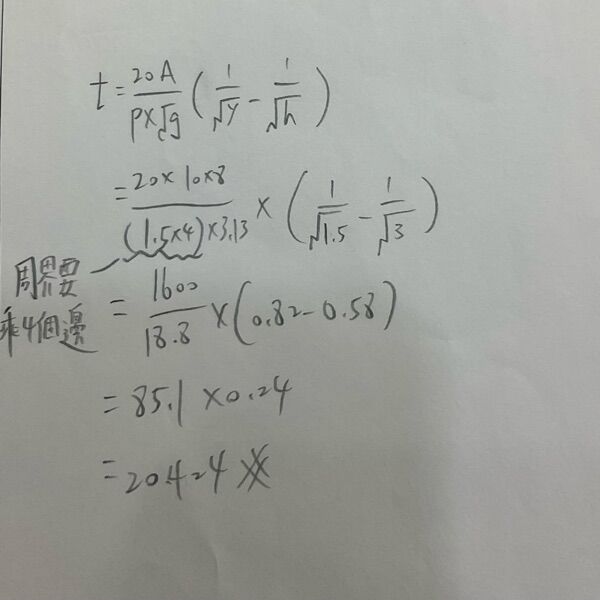 t = 20A / P×√g (1/√y − 1/√h)
= 20×10×8 / (1.5×4)×3.13 × (1/√1.5 − 1/√3)
周界要
乘4個邊
= 1600 / 18.8 × (0.82−0.58)
= 85.1 ×0.24
= 20.424 ※